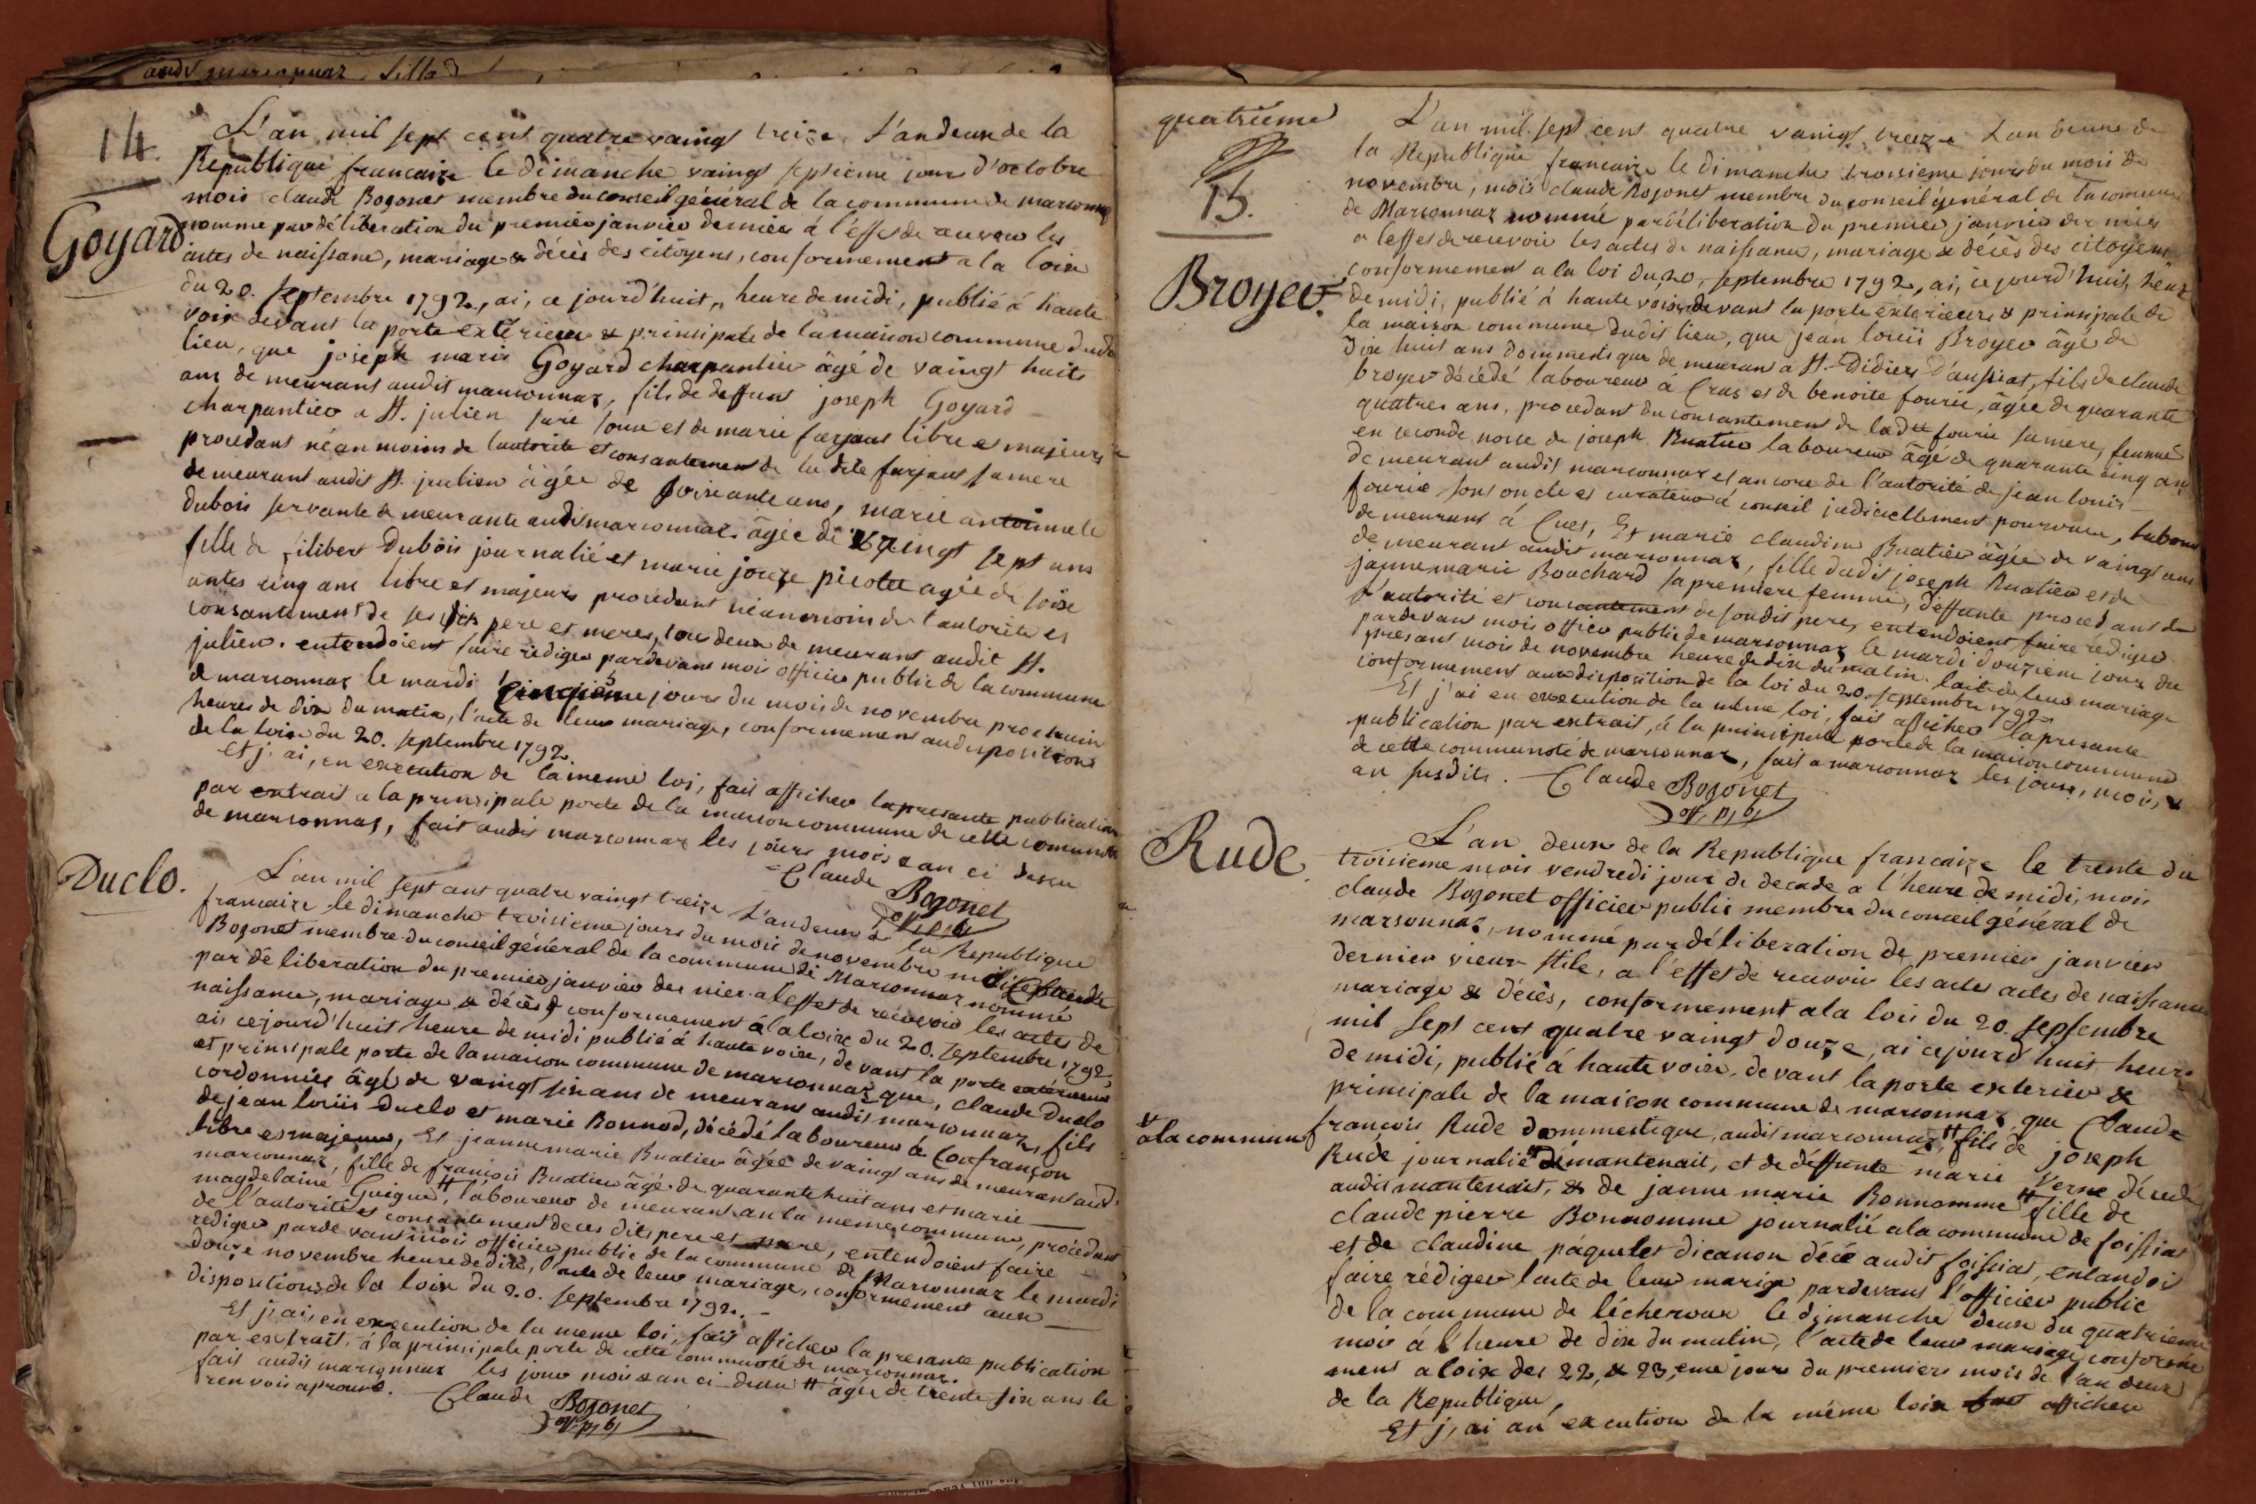 audit marsonnaz, fille
14.
Goyard
L'an mil sept cent quatre vaingt treize L'an deux de la
Republique francaize le dimanche vaingt septieme jour d'octobre
mois claude Bozonet membre du conseil général de la commune de marsonnaz
nomme par déliberation du premier janvier dernier à l'effet de recevoir les
actes de naissance, mariage & décès des citoyens, conformement a la loix
du 20. septembre 1792, ai, ce jourd'huit, heure de midi, publié à haute
voix devant la porte extérieur & principale de la maison commune dudit
lieu, que joseph marie Goyard charpantier âgé de vaingt huits
ans de meurant audit marsonnaz, fils de deffunt joseph Goyard
charpantier a St. julien sur et de marie farjaut libre et majeurs
procedant néan moins de l'autorité et consantement de la dite farjaut sa mere
de meurant audit St. julien âgée de soixante ans, marie antoinete
dubois servante de meurante audit marsonnaz âgée de vaingt sept ans
fille de filibert Dubois journalié et marie joueze picotee agée de soixe
antes cinq ans libre et majeurs procédant néanmoin de l'autorité et
consantement de ses dits pere et meres, tou deux de meurant audit St.
julien. entendoient faire rédiger pardevant mois officier public de la commune
de marsonnaz le mardi cinquième jours du mois de novembre prochain
heures de dix du matin, l'acte de leur mariage, conformement au disposition
de la loix du 20. septembre 1792
Et j'ai, en execution de la meme loi, fait afficher la presante publication
par extrait a la prinsipale porte de la maison commune de cette communoté
de marsonnaz, fait audit marsonnaz les jours mois & an ci dessu
Claude Bozonet
off. p, b,
Duclo.
L'an mil sept ant quatre vaingt treize L'an deux de la Republique
francaize le dimanche troisieme jours du mois de novembre mois Claude
Bozonet membre du conseil général de la commune de Marsonnaz nommé
par dé liberation du premier janvier der nier a l'effet de recevoir les actes de
naissance, mariage & décès conformement à la loix du 20. septembre 1792,
ais ce jourd'huit heure de midi publié à haute voix, de vant la porte extérieure
et prinsipale porte de la maison commune de marsonnaz que, claude Duclo
cordonnier âgé de vaingt six ans de meurant audit marsonnaz, fils
de jean louis Duclo et marie Bonnod, décédé laboureur à Confrançon
libre et majeurs, Et jeanne marie Buatier âgée de vaingt ans de meurant audit
marsonnaz, fille de françois Buatier âgé de quarante huit ans et marie
magdelaine Guigue # laboureur de meurant an la meme commune, procédant
de l'autorité et consantement de ces dits pere et mere, entendoient faire
rédiger parde vant mois officier public de la commune de Marsonnaz le mardi
douze novembre heure de dix, l'acte de leur mariage, conformement aux
dispositions de la loix du 20. septembre 1792.
Et j'ai, en execution de la meme loi, fait afficher la presante publication
par extrait à la principale porte de cette communoté de marsonnaz.
fait audit marsonnaz les jour mois & an ci dessu # âgée de trente six ans le
renvois aprouvé. Claude Bozonet
off. p, b,
quatrieme
15.
Broyer.
L'an mil sept cent quatre vaingt treize L'an deux de
la Republique francaize le dimanche troisieme jours du mois de
novembre, mois claude Bozonet membre du conseil général de la commune
de Marsonnaz nommé par déliberation du premier janvier der nier
a l'effet de recevoir les actes de naissance, mariage & décès des citoyens
conformement a la loi du 20, septembre 1792, ai, ce jourd'huit, heure
de midi, publié à haute voix de vant la porte extérieure & prinsipale de
la maison commune dudit lieu, que jean louis Broyer âgé de
dix huit ans dommestique de meurant a St. Didier d'aussiat, fils de claude
broyer décédé laboureur a Cras et de benoite fourie, âgée de quarante
quatres ans, procedant du consantement de la dte fourie sa mere, femme
en seconde nosse de joseph Buatier laboureur âgé de quarante cinq ans
de meurant audit marsonnaz et ancore de l'autorité de jean louis
fourie son oncle et curateur à conseil judiciellement pourvue, labour
de meurant à Cras, Et marie claudine Buatier âgée de vaingt ans
de meurant audit marsonnaz, fille dudit joseph Buatier et de
janne marie Bouchard sa premiere femme, deffunte procedant de
l'autorité et consantement de sondit pere, entendoient faire rédiger
pardevant mois officier public de marsonnaz le mardi douzieme jour du
presant mois de novembre heure de dix du matin. l'acte de leur mariage
conformement aux disposition de la loi du 20. septembre 1792.
Et j'ai en execution de la même loi, fait afficher la presante
publication par extrait, à la prinsipale porte de la maison commune
de cette communoté de marsonnaz, fait a marsonnaz les jours, mois, &
an susdits. Claude Bozonet
off. p, b,
Rude
L'an deux de la Republique francaize le trente du
troisieme mois vendredi jour de decade a l'heure de midi, mois
claude Bozonet officier public membre du conseil général de
marsonnaz, nommé par déliberation de premier janvier
dernier vieux stile, a l'effet de recevoir les actes actes de naissance
mariage & décès, conformement a la lois du 20 septembre
mil sept cent quatre vaingt douze, ai cejourd'huit heure
de midi, publié à haute voix, devant la porte exterieur &
principale de la maison commune de marsonnaz que Claude
françois Rude dommestique audit marsonnaz # fils de joseph
# a la commune
Rude journalié démantenait, et de déffunte marie Verne décédé
audit mantenait, & de janne marie Bonnomme # fille de
claude pierre Bonnomme journalié a la commune de foissiat
et de claudine paquelet dicanon décé audit foissiat, entandoit
faire rédiger l'acte de leur marige pardevant l'officier public
de la commune de lécheroux le dimanche deux du quatrieme
mois a l'heure de dix du matin, l'acte de leur mariage conforme
ment a loix des 22, & 23, eme jour du premiers mois de l'an deux
de la Republique,
Et j'ai an éxecution de la même loix fait afficher